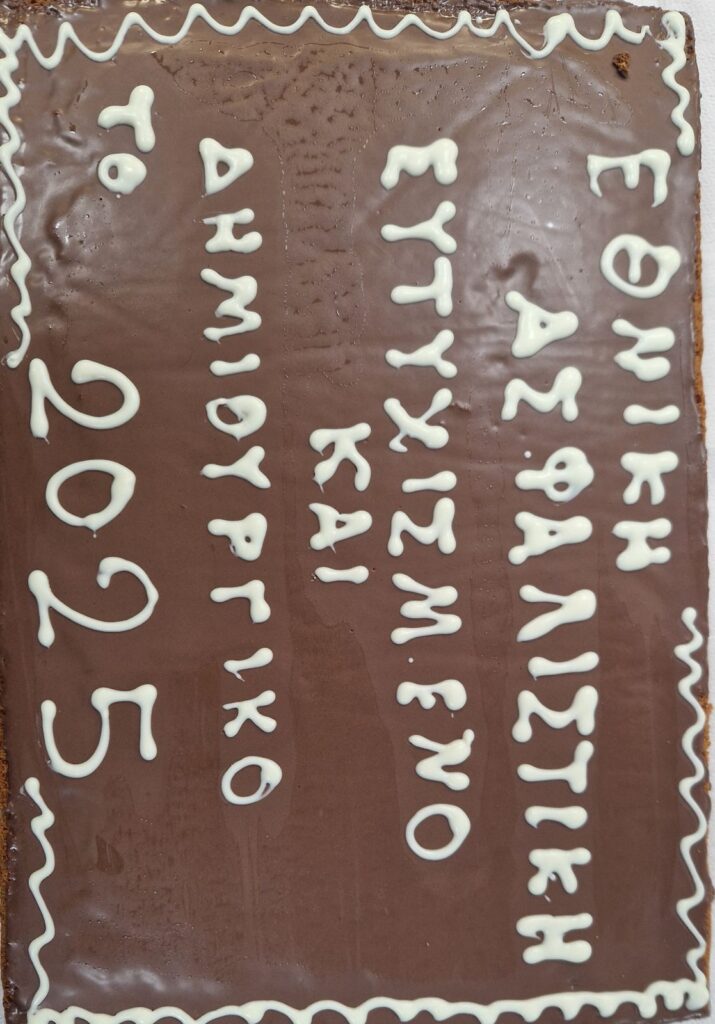 ΕΘΝΙΚΗ
ΑΣΦΑΛΙΣΤΙΚΗ
ΕΥΤΥΧΙΣΜΕΝΟ
ΚΑΙ
ΔΗΜΙΟΥΡΓΙΚΟ
ΤΟ 2025